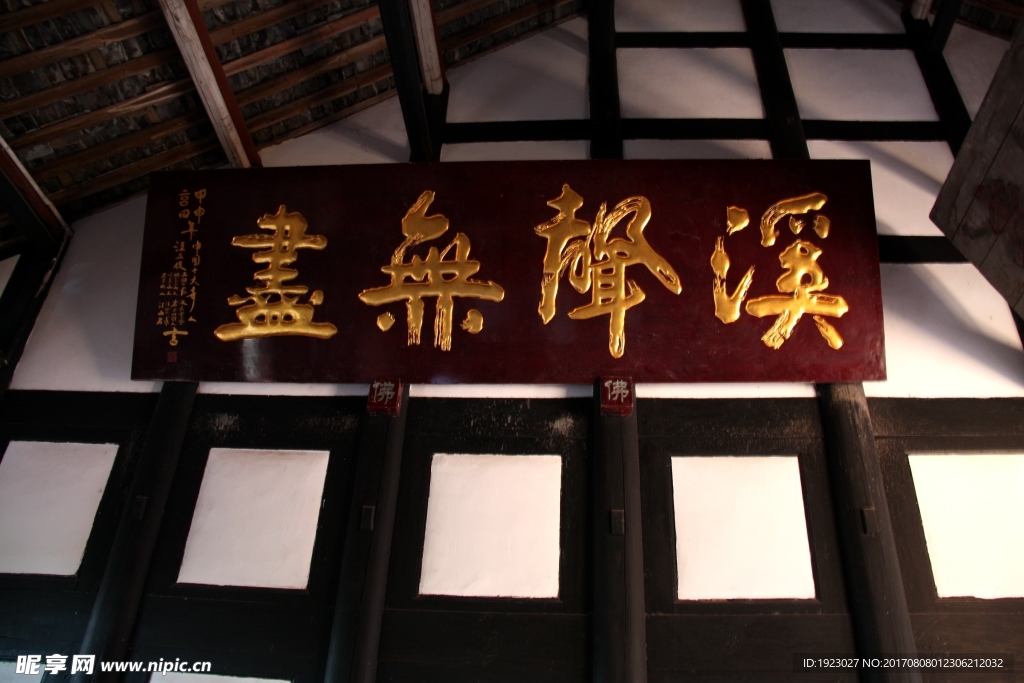 溪聲無盡
甲申年
佛
佛
昵享网 www.nipic.cn
ID:1923027 NO:20170808012306212032